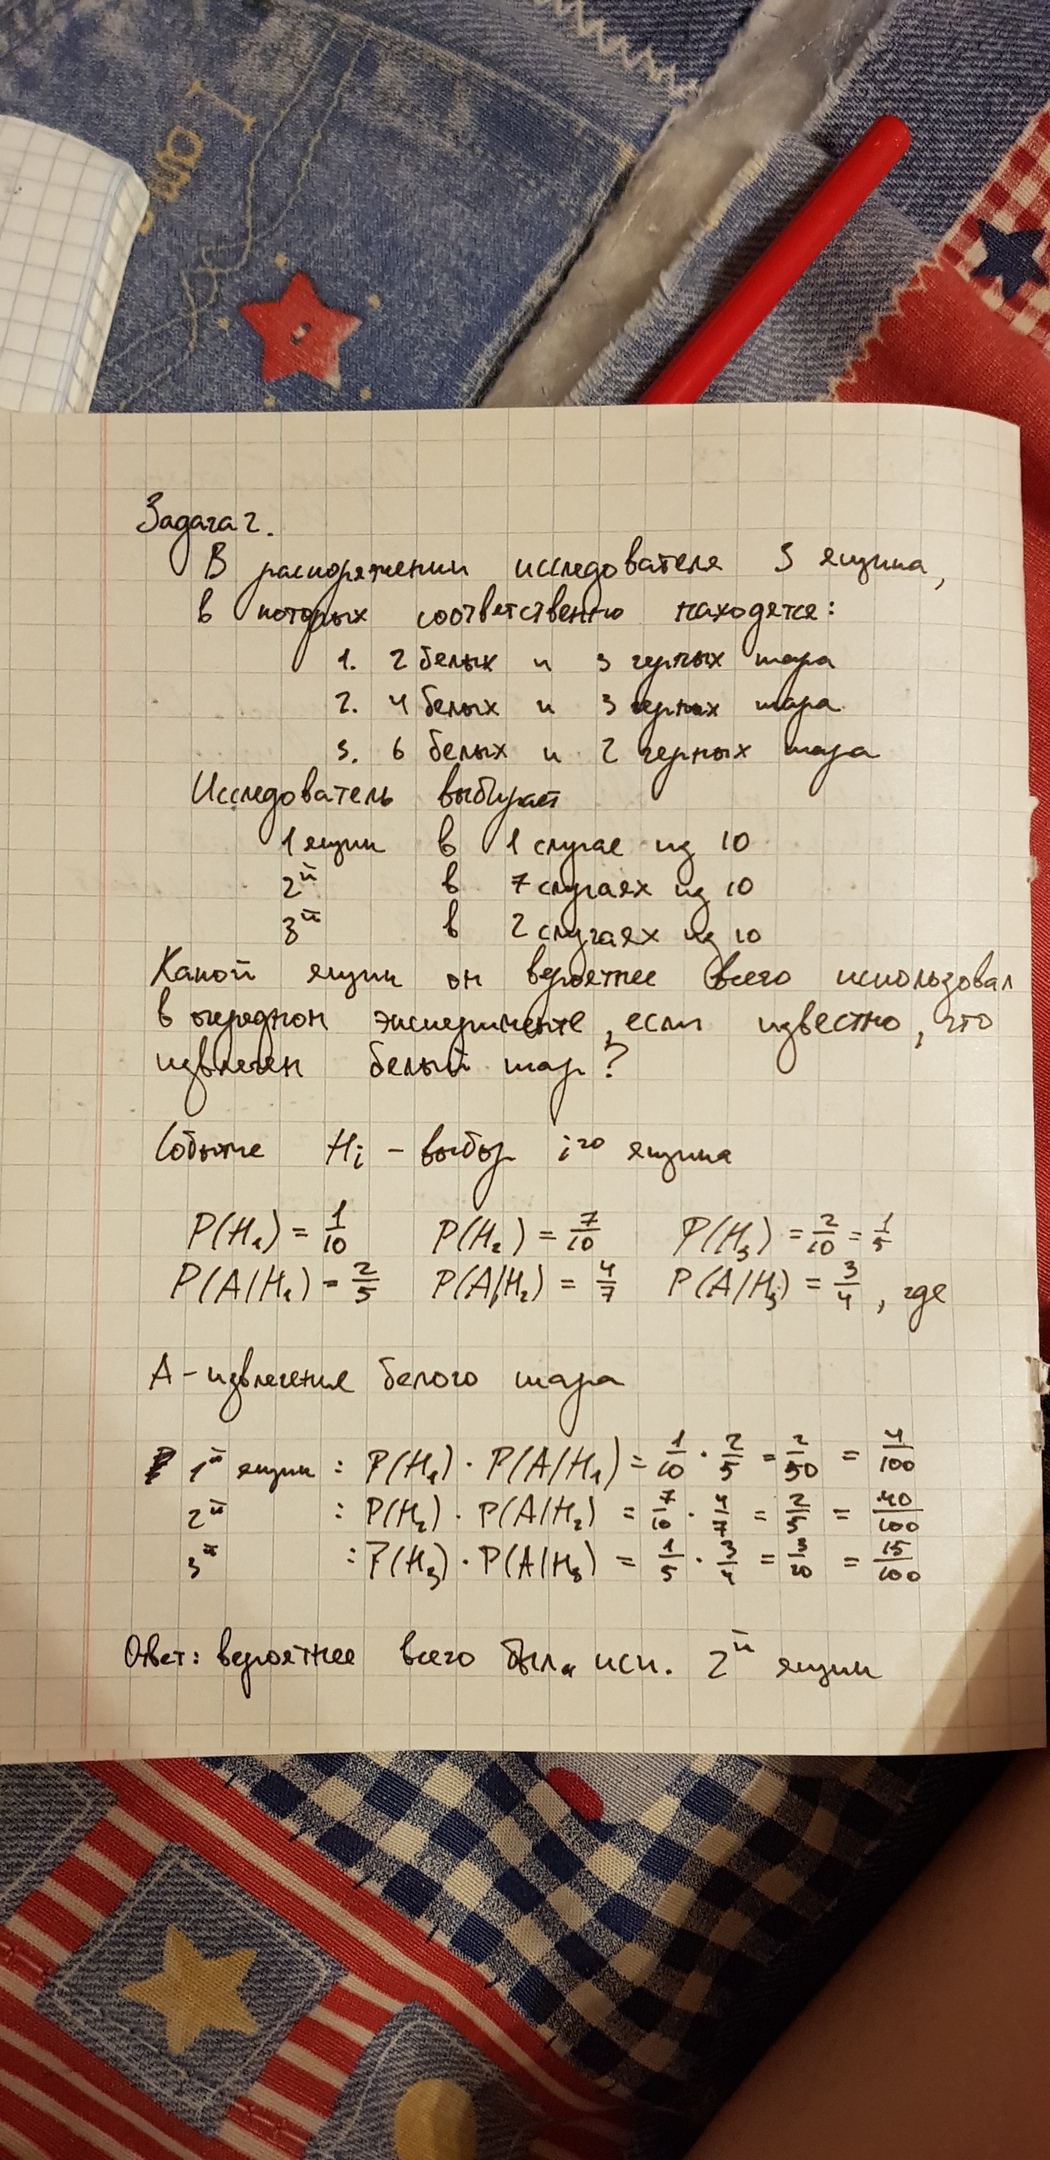 Задача 2.
В распоряжении исследователя 3 ящика,
в которых соответственно находятся:
1. 2 белых и 3 черных шара
2. 4 белых и 3 черных шара
3. 6 белых и 2 черных шара
Исследователь выбирает
1 ящик в 1 случае из 10
2й в 7 случаях из 10
3й в 2 случаях из 10
Какой ящик он вероятнее всего использовал
в очередном эксперименте, если известно, что
извлечен белый шар?
Событие Hi - выбор iго ящика
P(H₁) = 1/10 P(H₂) = 7/10 P(H₃) = 2/10 = 1/5
P(A/H₁) = 2/5 P(A/H₂) = 4/7 P(A/H₃) = 3/4, где
A - извлечения белого шара
1й ящик: P(H₁) · P(A/H₁) = 1/10 · 2/5 = 2/50 = 4/100
2й : P(H₂) · P(A/H₂) = 7/10 · 4/7 = 2/5 = 40/100
3й : P(H₃) · P(A/H₃) = 1/5 · 3/4 = 3/20 = 15/100
Ответ: вероятнее всего был исп. 2й ящик